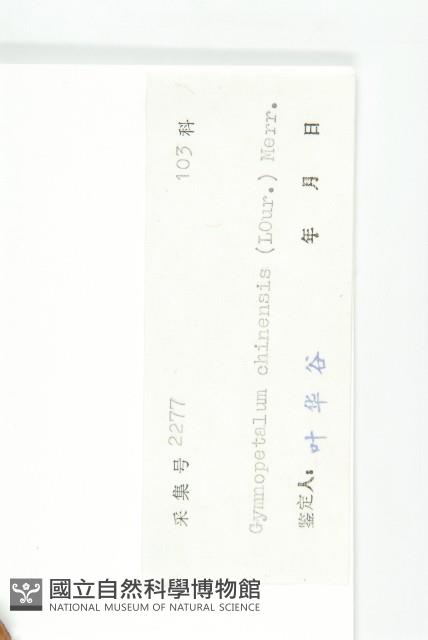 采集号 2277 103 科
Gymnopetalum chinensis (LOur.) Merr.
鉴定人: 叶华谷 年 月 日
國立自然科學博物館
NATIONAL MUSEUM OF NATURAL SCIENCE